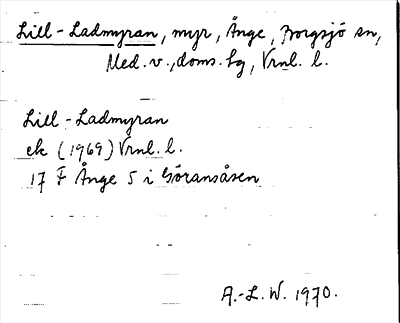 Lill-Ladmyran, myr, Ånge, Borgsjö sn,
Med. v., doms. hg, Vrnl. l.
Lill-Ladmyran
ek (1969) Vrnl. l.
17 F Ånge 5 i Göransåsen
A.-L. W. 1970.